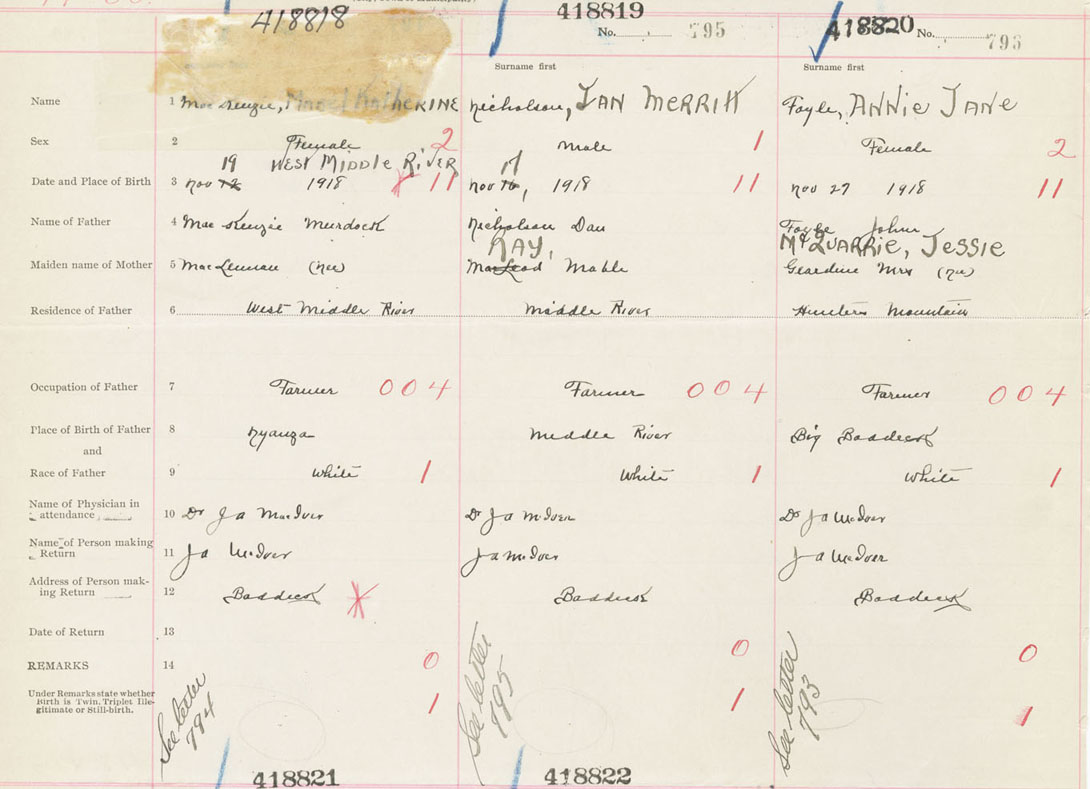 418818 418819 418820
No. 795 No. 796
Surname first Surname first
Name 1 MacKenzie, Mabel KatheRINE Nicholson, IAN MERRITT Foyle, ANNIE JANE
Sex 2 Female 2 Male 1 Female 2
19 WEST MIDDLE RIVER 17
Date and Place of Birth 3 Nov 12 1918 X 11 Nov 16, 1918 11 Nov 27 1918 11
Name of Father 4 MacKenzie Murdock Nicholson Dan Foyle John
RAY, McQUARRIE, JESSIE
Maiden name of Mother 5 MacLennan (nee) MacLeod Mable Geardine Mrs (nee)
Residence of Father 6 West Middle River Middle River Hunters Mountain
Occupation of Father 7 Farmer 004 Farmer 004 Farmer 004
Place of Birth of Father 8 Nyanza Middle River Big Baddeck
and
Race of Father 9 White 1 White 1 White 1
Name of Physician in
attendance 10 Dr J a MacIver Dr J a McIver Dr J a McIver
Name of Person making
Return 11 J a McIver J a McIver J a McIver
Address of Person mak-
ing Return 12 Baddeck X Baddeck Baddeck
Date of Return 13
REMARKS 14 0 0 0
Under Remarks state whether
Birth is Twin, Triplet Ille-
gitimate or Still-birth. 1 1 1
See letter 794 See letter 795 See letter 793
418821 418822